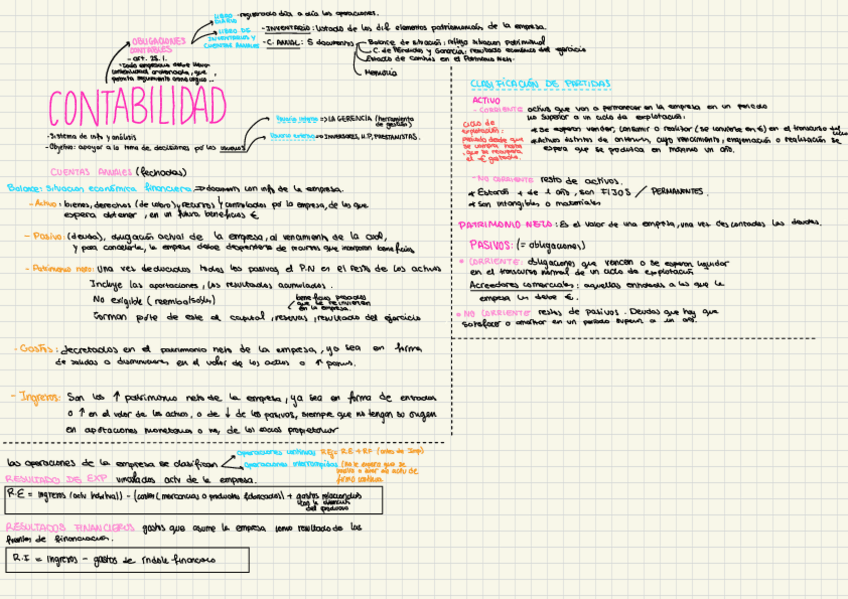 LIBRO DIARIO registrado día a día las operaciones.
OBLIGACIONES CONTABLES
LIBRO DE INVENTARIOS Y CUENTAS ANUALES
- INVENTARIO: listado de los dif elementos patrimoniales de la empresa.
- C. ANUAL: 5 documentos
Balance de situación: refleja situacion patrimonial
C. de Pérdidas y Ganancia: resultado económico del ejercicio
Estado de cambios en el Patrimonio Neto
Memoria
- art. 25.1.
CONTABILIDAD
- Sistema de info y análisis
- Objetivo: apoyar a la toma de decisiones por los usuarios
Usuario interno => LA GERENCIA (herramienta de gestión)
Usuario externo => INVERSORES, H.P, PRESTAMISTAS.
CUENTAS ANUALES (fechadas)
Balance: Situación económica financiera => documento con info de la empresa.
- Activo: bienes, derechos (de cobro) y recursos controlados por la empresa, de los que
espera obtener, en un futuro beneficios €
- Pasivo: (deuda), obligación actual de la empresa, al vencimiento de la cual,
y para cancelarla, la empresa debe desprenderse de recursos que incorporan beneficios
- Patrimonio neto: una vez deducidos todos los pasivos el P.N es el resto de los activos
Incluye las aportaciones, los resultados acumulados.
No exigible (reembolsable)
beneficios pasados que se reinvierten en la empresa.
Forman parte de este el capital, reservas, resultado del ejercicio
- Gastos: decretados en el patrimonio neto de la empresa, ya sea en forma
de salidas o disminuciones en el valor de los activos o ↑ pasivos.
- Ingresos: Son los ↑ patrimonio neto de la empresa, ya sea en forma de entradas
o ↑ en el valor de los activos, o de ↓ de los pasivos, siempre que no tengan su origen
en aportaciones monetarias o no, de los socios propietarios
las operaciones de la empresa se clasifican
operaciones continuas RE = RE + RF (antes de Imp)
operaciones interrumpidas
RESULTADO DE EXP vinculados actv de la empresa.
R.E = ingresos (actv habitual) - (costes (mercancias o productos fabricados)) + gastos relacionados con la obtención del producto
RESULTADOS FINANCIEROS gastos que asume la empresa como resultado de las
fuentes de financiación.
R.F = ingresos - gastos de índole financiero
CLASIFICACIÓN DE PARTIDAS
ACTIVO
- CORRIENTE activos que van a permanecer en la empresa en un periodo
no superior a un ciclo de explotación.
ciclo de explotación:
periodo desde que se compra hasta que se recupera el € gastado.
* Se esperan vender, consumir o realizar (se convierte en €) en el transcurso del ciclo
* Activos distintos de anteriores, cuyo vencimiento, enajenación o realización se
espera que se produzca en máximo un año.
- NO CORRIENTE resto de activos.
* Estarán + de 1 año, son FIJOS / PERMANENTES.
* Son intangibles o materiales
PATRIMONIO NETO: Es el valor de una empresa, una vez descontadas las deudas.
PASIVOS: (= obligaciones)
* CORRIENTE: obligaciones que vencen o se esperan liquidar
en el transcurso normal de un ciclo de explotación
Acreedores comerciales: aquellas entidades a las que la
empresa les debe €.
* NO CORRIENTE: restos de pasivos. Deudas que hay que
satisfacer o amortizar en un periodo superior a un año.